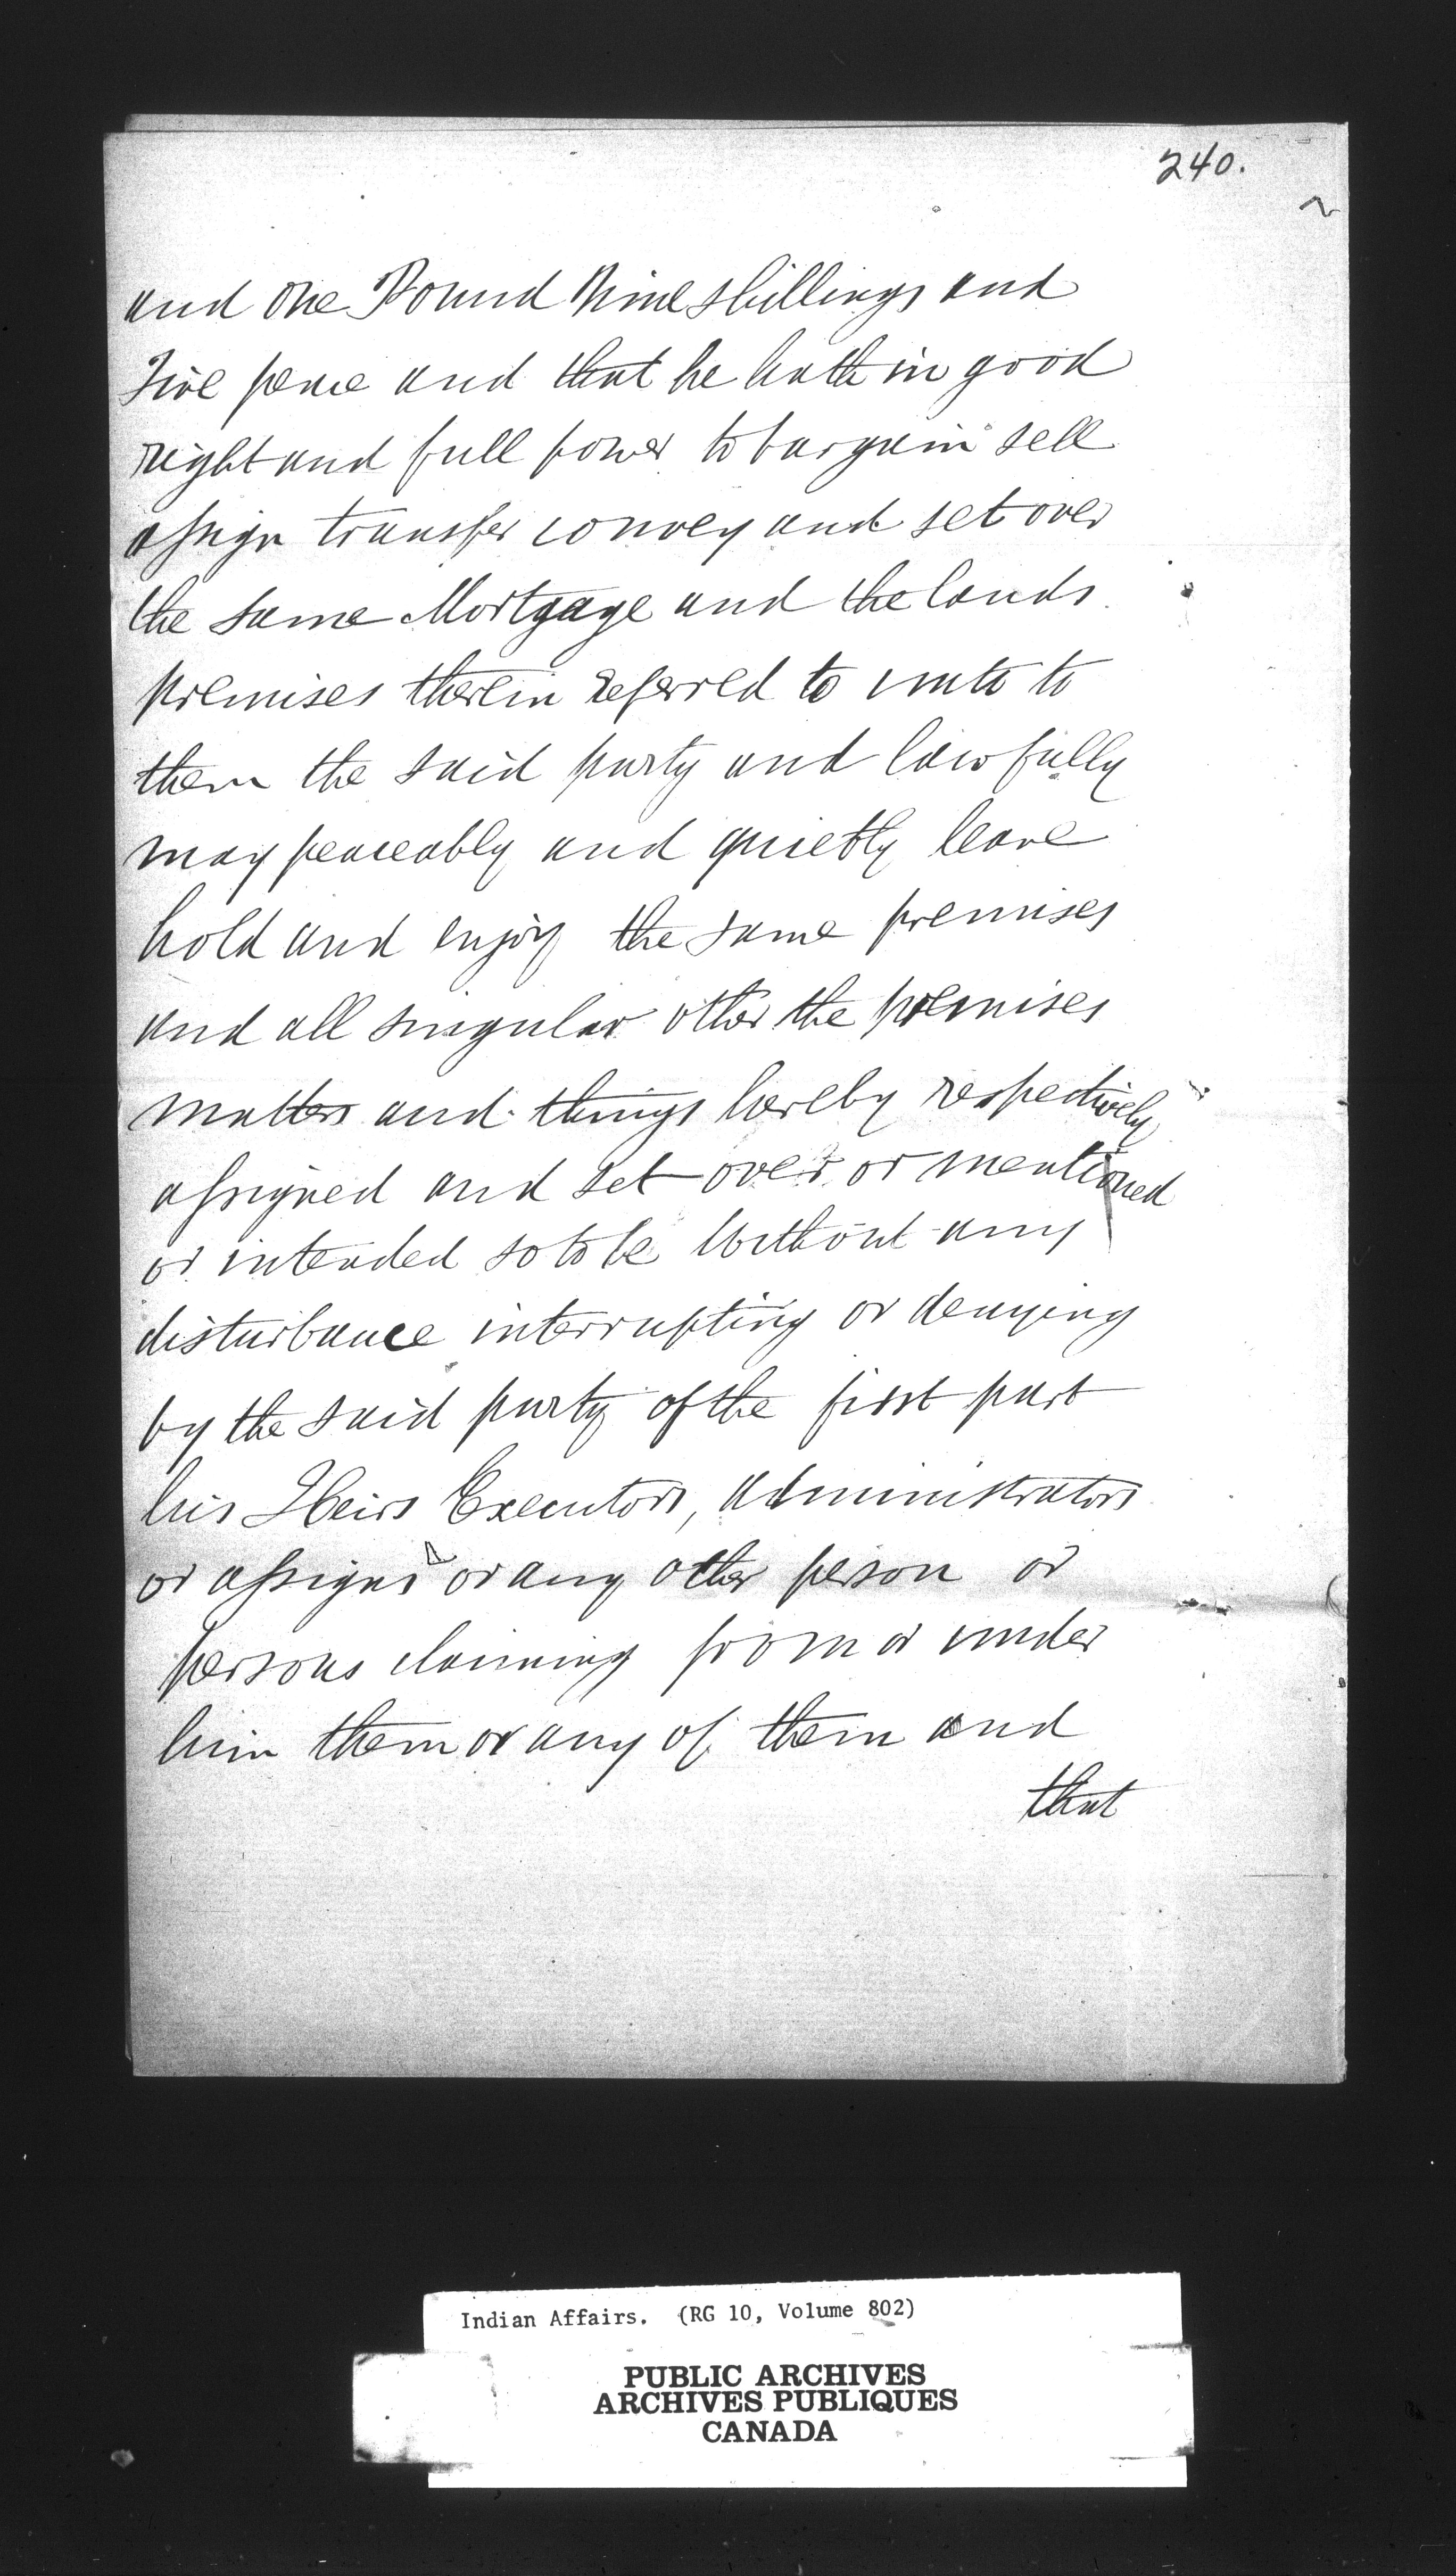 240.
and one Pound Nine shillings and
Five pence and that he hath in good
right and full power to bargain sell
assign transfer convey and set over
the same Mortgage and the lands
premises therein referred to unto to
them the said party and lawfully
may peaceably and quietly leave
hold and enjoy the same premises
and all singular other the premises
matters and things hereby respectively
assigned and set over or mentioned
or intended so to be Without any
disturbance interrupting or denying
by the said party of the first part
his Heirs Executors, administrators
or assigns or any other person or
persons claiming from or under
him them or any of them and
that
Indian Affairs. (RG 10, Volume 802)
PUBLIC ARCHIVES
ARCHIVES PUBLIQUES
CANADA